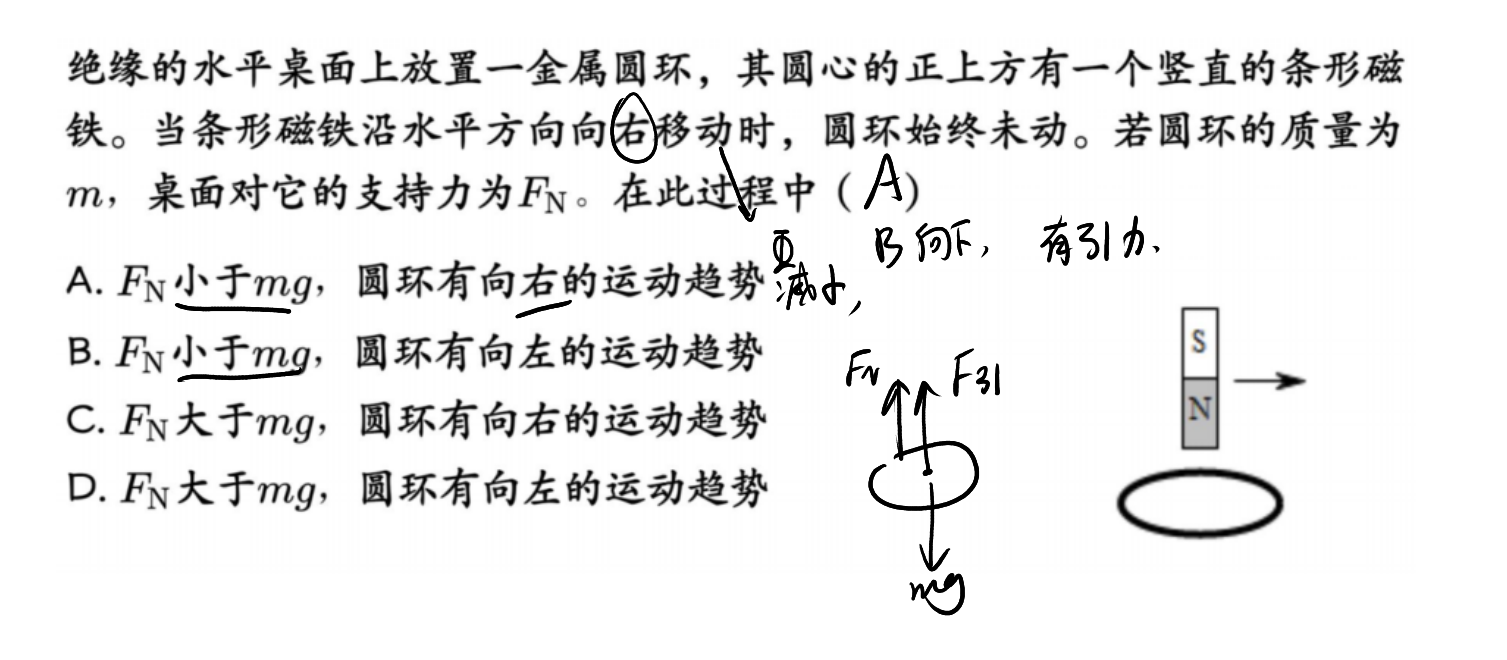 绝缘的水平桌面上放置一金属圆环，其圆心的正上方有一个竖直的条形磁
铁。当条形磁铁沿水平方向向右移动时，圆环始终未动。若圆环的质量为
m，桌面对它的支持力为FN。在此过程中（A）
Φ减小，B向下，有引力.
A. FN小于mg，圆环有向右的运动趋势
B. FN小于mg，圆环有向左的运动趋势
C. FN大于mg，圆环有向右的运动趋势
D. FN大于mg，圆环有向左的运动趋势
FN F引
mg
S
N